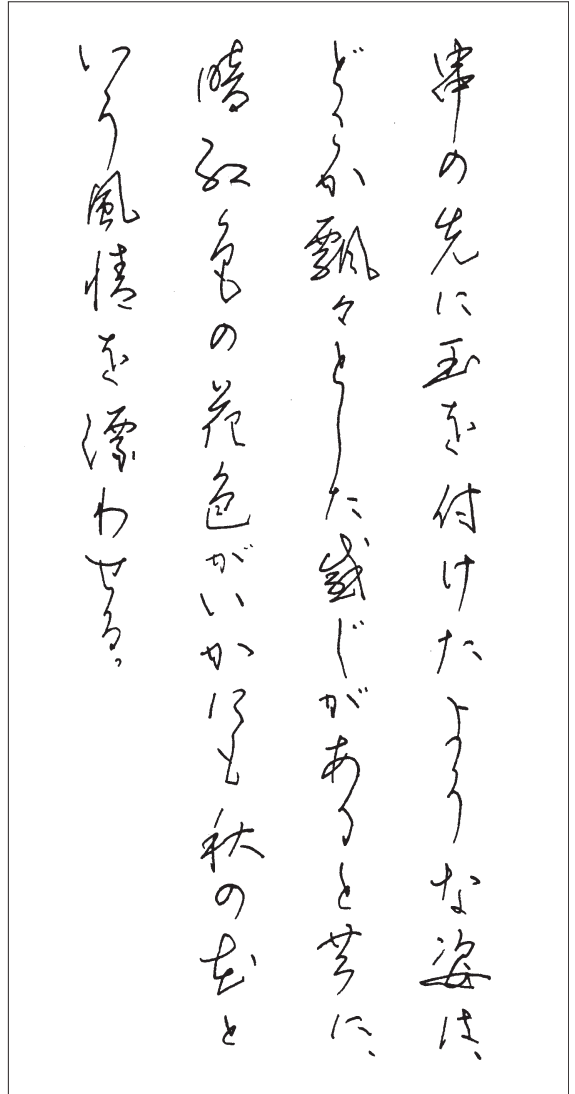 串の先に玉を付けたような姿は、
どこか飄々とした感じがあると共に、
暗紅色の花色がいかにも秋の花と
いう風情を漂わせる。